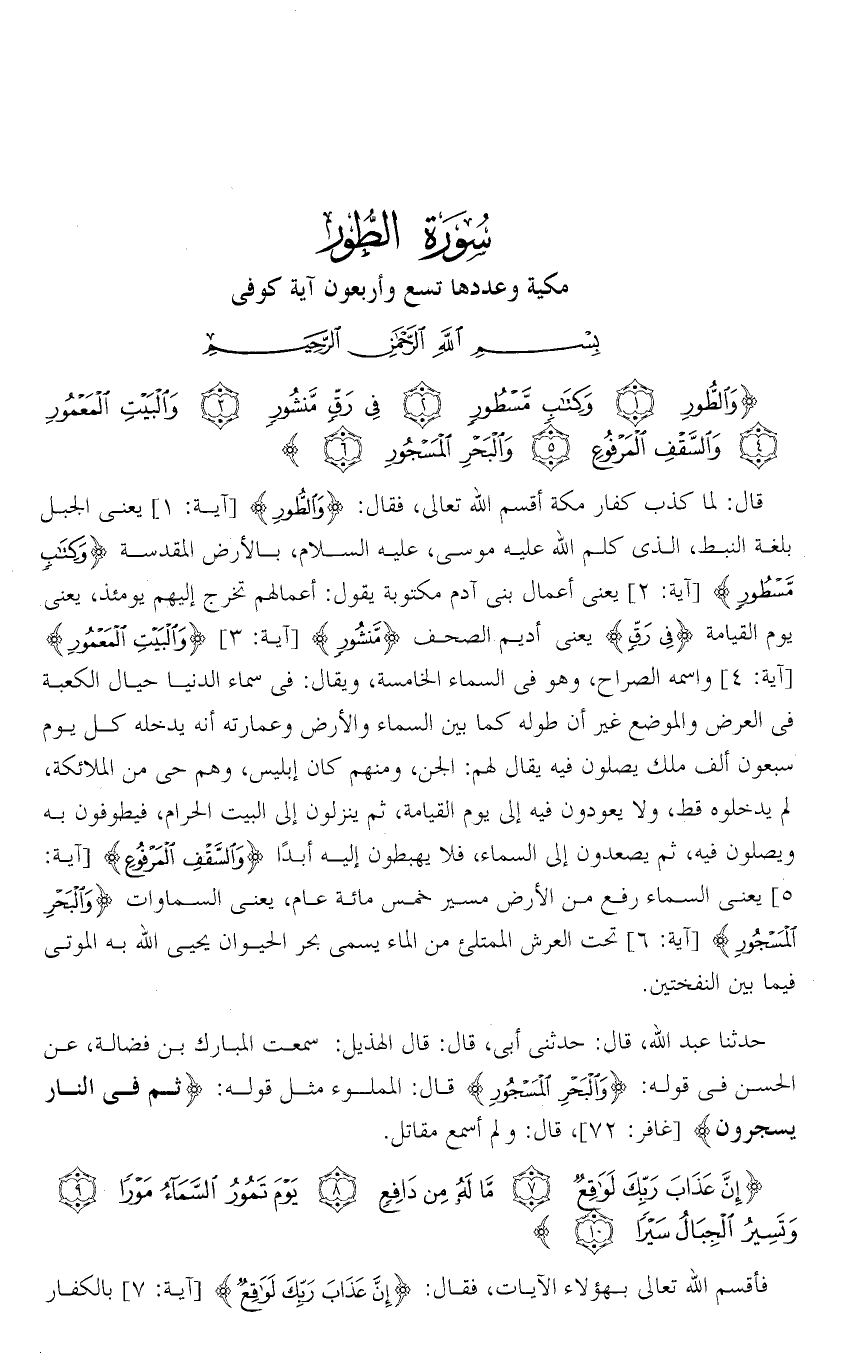 سُورَةُ الطُّورِ
مكية وعددها تسع وأربعون آية كوفى
بِسْمِ ٱللَّهِ ٱلرَّحْمَٰنِ ٱلرَّحِيمِ
﴿وَٱلطُّورِ ١ وَكِتَٰبٍ مَّسْطُورٍ ٢ فِى رَقٍّ مَّنشُورٍ ٣ وَٱلْبَيْتِ ٱلْمَعْمُورِ
٤ وَٱلسَّقْفِ ٱلْمَرْفُوعِ ٥ وَٱلْبَحْرِ ٱلْمَسْجُورِ ٦ ﴾
قال: لما كذب كفار مكة أقسم الله تعالى، فقال: ﴿وَٱلطُّورِ﴾ [آية: ١] يعنى الجبل
بلغة النبط، الذى كلم الله عليه موسى، عليه السلام، بالأرض المقدسة ﴿وَكِتَٰبٍ
مَّسْطُورٍ﴾ [آية: ٢] يعنى أعمال بنى آدم مكتوبة يقول: أعمالهم تخرج إليهم يومئذ، يعنى
يوم القيامة ﴿فِى رَقٍّ﴾ يعنى أديم الصحف ﴿مَّنشُورٍ﴾ [آية: ٣] ﴿وَٱلْبَيْتِ ٱلْمَعْمُورِ﴾
[آية: ٤] واسمه الصراح، وهو فى السماء الخامسة، ويقال: فى سماء الدنيا حيال الكعبة
فى العرض والموضع غير أن طوله كما بين السماء والأرض وعمارته أنه يدخله كل يوم
سبعون ألف ملك يصلون فيه يقال لهم: الجن، ومنهم كان إبليس، وهم حى من الملائكة،
لم يدخلوه قط، ولا يعودون فيه إلى يوم القيامة، ثم ينزلون إلى البيت الحرام، فيطوفون به
ويصلون فيه، ثم يصعدون إلى السماء، فلا يهبطون إليه أبدًا ﴿وَٱلسَّقْفِ ٱلْمَرْفُوعِ﴾ [آية:
٥] يعنى السماء رفع من الأرض مسير خمس مائة عام، يعنى السماوات ﴿وَٱلْبَحْرِ
ٱلْمَسْجُورِ﴾ [آية: ٦] تحت العرش الممتلئ من الماء يسمى بحر الحيوان يحيى الله به الموتى
فيما بين النفختين.
حدثنا عبد الله، قال: حدثنى أبى، قال: قال الهذيل: سمعت المبارك بن فضالة، عن
الحسن فى قوله: ﴿وَٱلْبَحْرِ ٱلْمَسْجُورِ﴾ قال: المملوء مثل قوله: ﴿ثم فى النار
يسجرون﴾ [غافر: ٧٢]، قال: ولم أسمع مقاتل.
﴿إِنَّ عَذَابَ رَبِّكَ لَوَٰقِعٌ ٧ مَّا لَهُۥ مِن دَافِعٍ ٨ يَوْمَ تَمُورُ ٱلسَّمَآءُ مَوْرًا ٩
وَتَسِيرُ ٱلْجِبَالُ سَيْرًا ١٠ ﴾
فأقسم الله تعالى بهؤلاء الآيات، فقال: ﴿إِنَّ عَذَابَ رَبِّكَ لَوَٰقِعٌ﴾ [آية: ٧] بالكفار